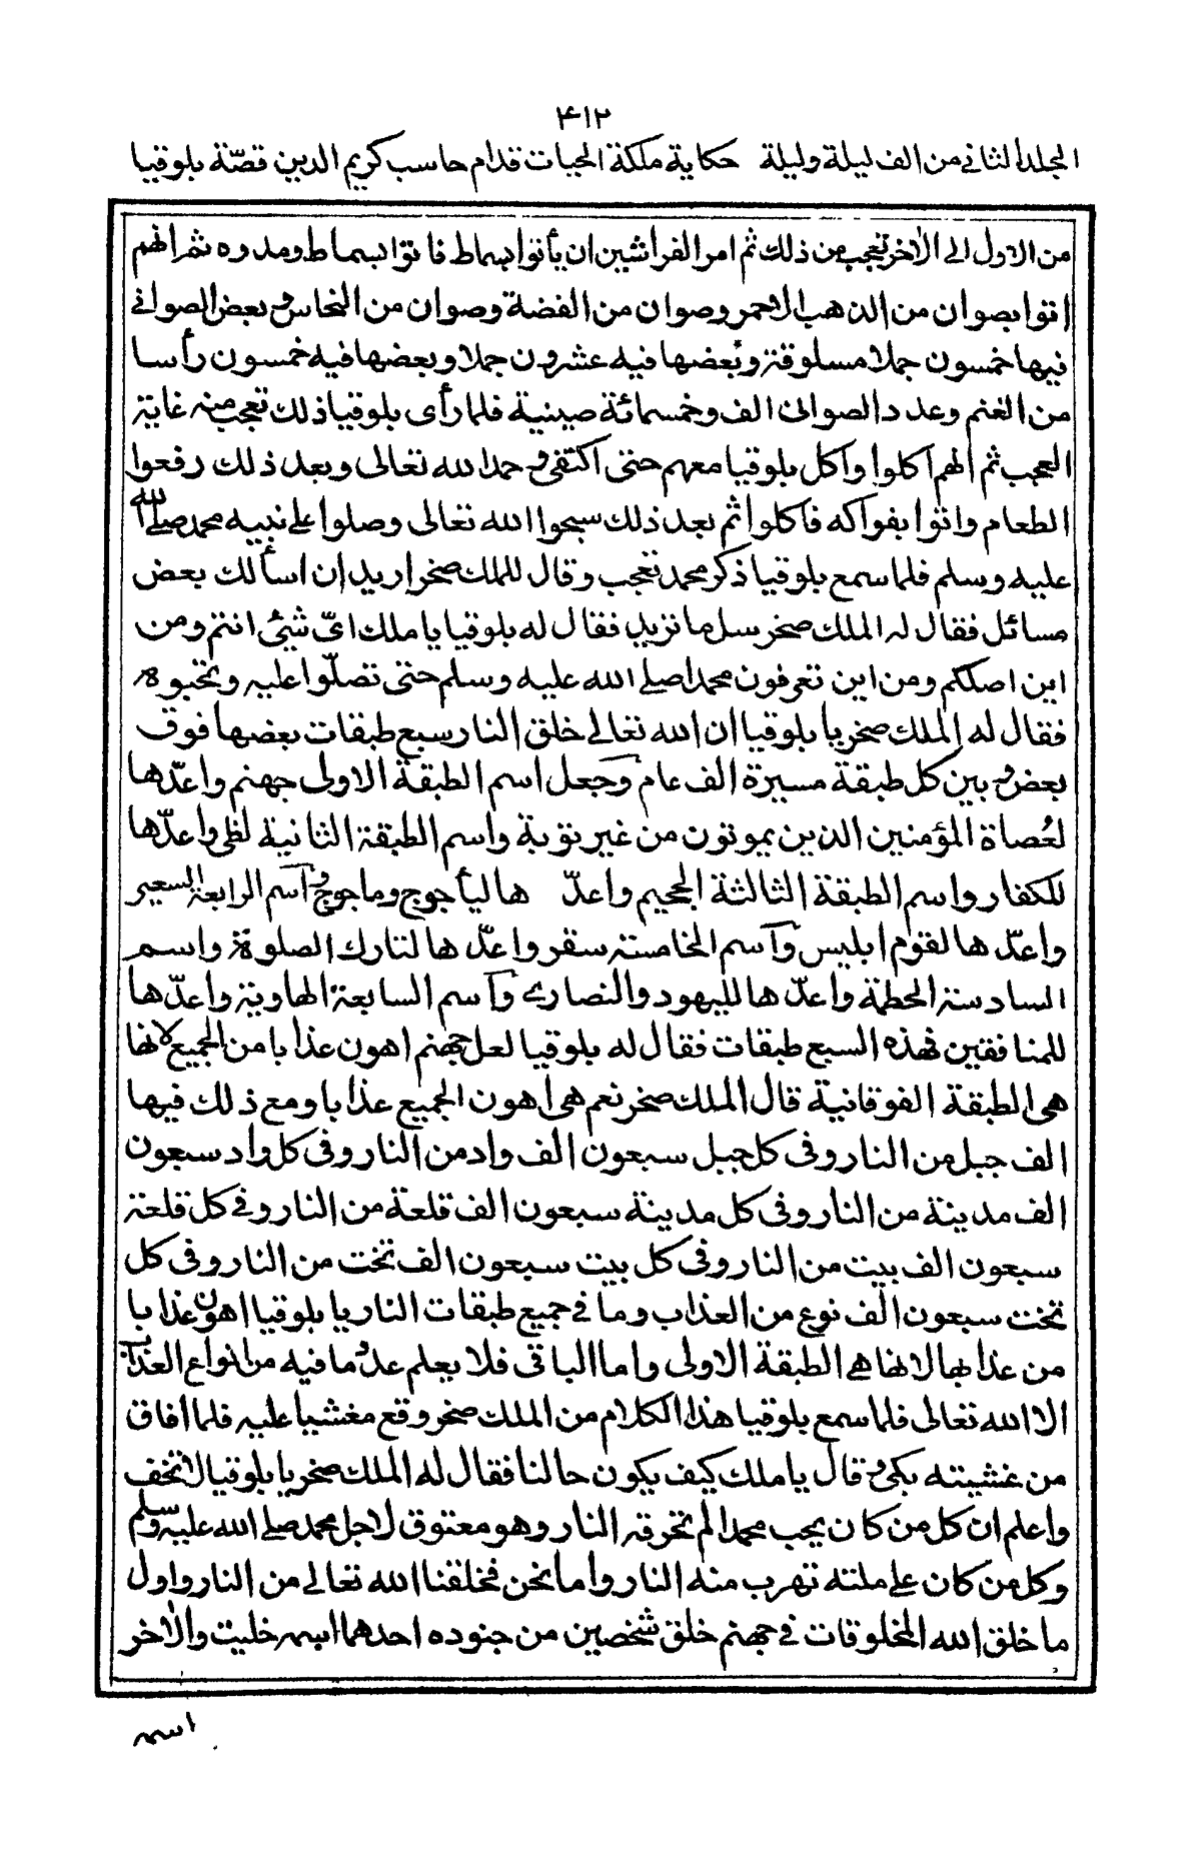 ۴۱۲
المجلد الثانى من الف ليلة وليلة حكاية ملكة الحيات قدام حاسب كريم الدين قصّة بلوقيا
من الاول الى الآخر تعجب من ذلك ثم امر الفراشين ان يأتوا بسماط فاتوا بسماط ومدوه ثم انهم
اتوا بصوان من الذهب الاحمر وصوان من الفضة وصوان من النحاس وبعض الصوانى
فيها خمسون جملا مسلوقة وبعضها فيه عشرون جملا وبعضها فيه خمسون رأسا
من الغنم وعدد الصوانى الف وخمسمائة صينية فلما رأى بلوقيا ذلك تعجب منه غاية
العجب ثم انهم اكلوا واكل بلوقيا معهم حتى اكتفى وحمد الله تعالى وبعد ذلك رفعوا
الطعام واتوا بفواكه فاكلوا ثم بعد ذلك سبحوا الله تعالى وصلوا على نبيه محمد صلى الله
عليه وسلم فلما سمع بلوقيا ذكر محمد تعجب وقال للملك صخر اريد ان اسألك بعض
مسائل فقال له الملك صخر سل ما تريد فقال له بلوقيا يا ملك اىّ شئ انتم ومن
اين اصلكم ومن اين تعرفون محمدا صلى الله عليه وسلم حتى تصلّوا عليه وتحبوه
فقال له الملك صخر يا بلوقيا ان الله تعالى خلق النار سبع طبقات بعضها فوق
بعض وبين كل طبقة مسيرة الف عام وجعل اسم الطبقة الاولى جهنم واعدّها
لعُصاة المؤمنين الذين يموتون من غير توبة واسم الطبقة الثانية لظى واعدّها
للكفار واسم الطبقة الثالثة الجحيم واعدّ ها ليأجوج وماجوج واسم الرابعة السعير
واعدّ ها لقوم ابليس واسم الخامسة سقر واعدّ ها لتارك الصلوة واسم
السادسة الحطمة واعدّ ها لليهود والنصارى واسم السابعة الهاوية واعدّها
للمنافقين فهذه السبع طبقات فقال له بلوقيا لعل جهنم اهون عذابا من الجميع لانها
هى الطبقة الفوقانية قال الملك صخر نعم هى اهون الجميع عذابا ومع ذلك فيها
الف جبل من النار وفى كل جبل سبعون الف واد من النار وفى كل واد سبعون
الف مدينة من النار وفى كل مدينة سبعون الف قلعة من النار وفى كل قلعة
سبعون الف بيت من النار وفى كل بيت سبعون الف تخت من النار وفى كل
تخت سبعون الف نوع من العذاب وما فى جميع طبقات النار يا بلوقيا اهون عذابا
من عذابها لانها هى الطبقة الاولى واما الباقى فلا يعلم عدد ما فيه من انواع العذاب
الا الله تعالى فلما سمع بلوقيا هذا الكلام من الملك صخر وقع مغشيا عليه فلما افاق
من غشيته بكى وقال يا ملك كيف يكون حالنا فقال له الملك صخر يا بلوقيا لا تخف
واعلم ان كل من كان يحب محمدا لم تحرقه النار وهو معتوق لاجل محمد صلى الله عليه وسلم
وكل من كان على ملته تهرب منه النار واما نحن فخلقنا الله تعالى من النار واول
ما خلق الله المخلوقات فى جهنم خلق شخصين من جنوده احدهما اسمه خليت والآخر
اسمه